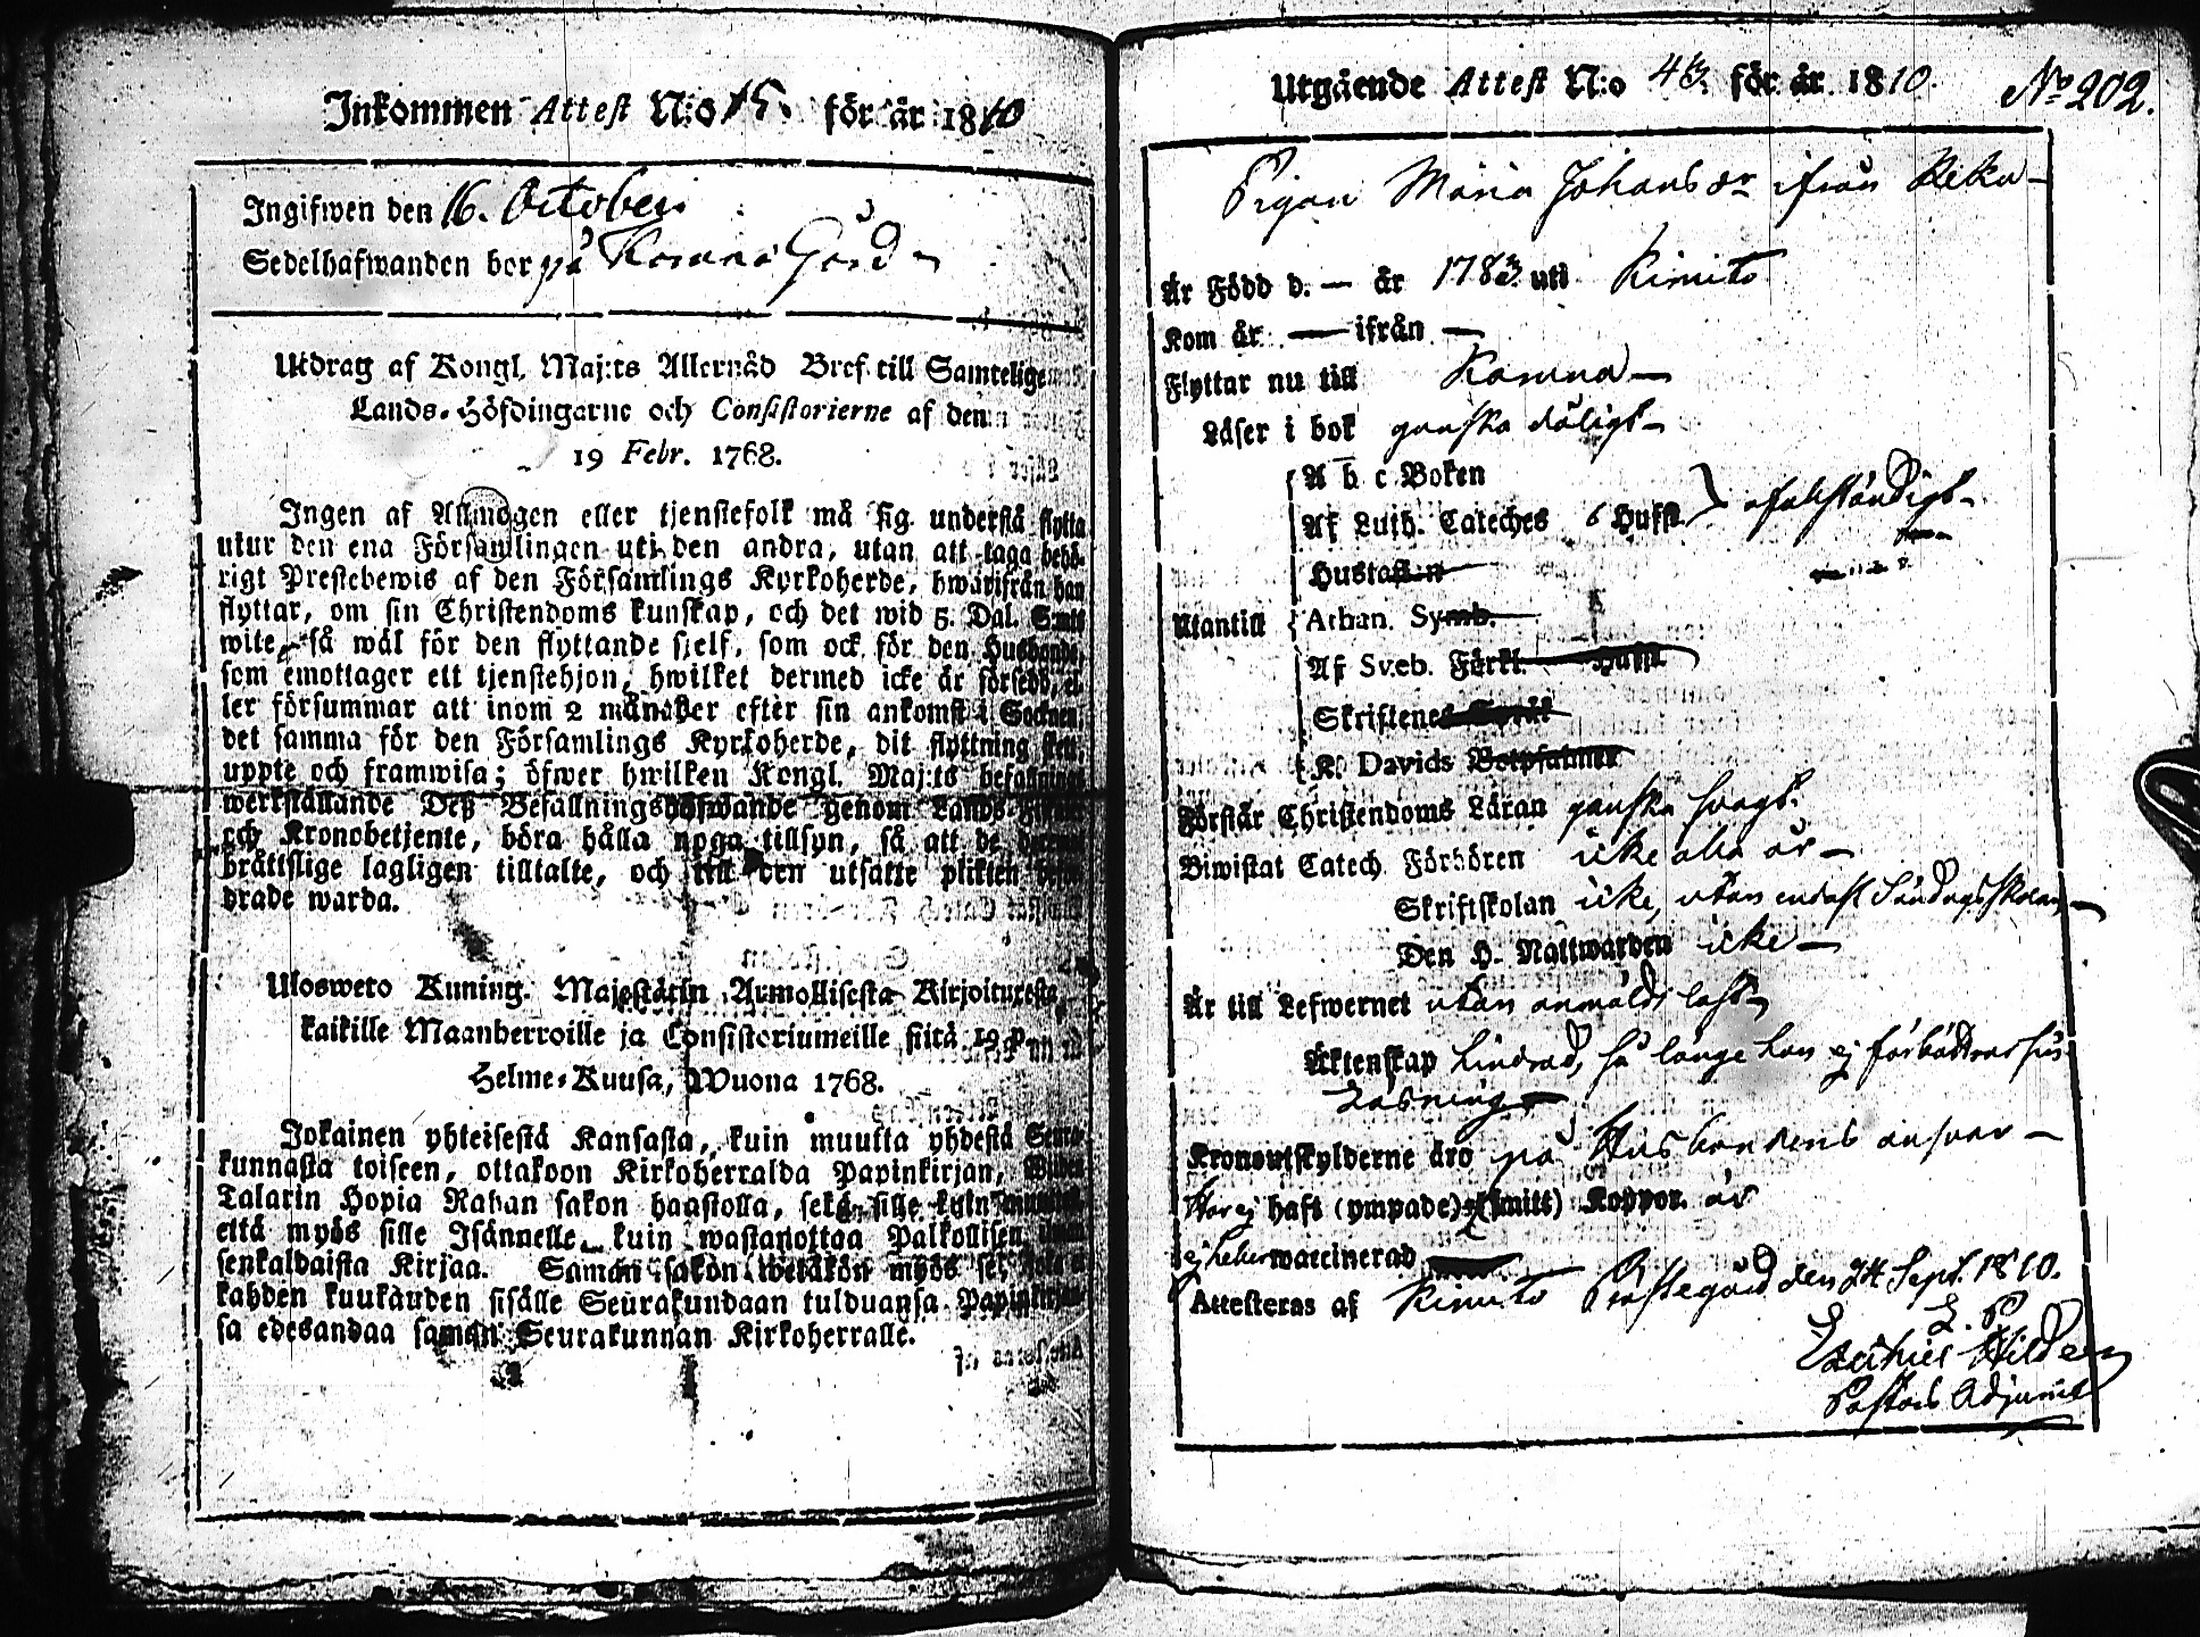 Inkommen Attest N:o 15. för år 1810
Ingifwen den 16. October
Sedelhafwanden bor på Karuna Gård
Utdrag af Kongl. Maj:ts Allernåd Bref till Samtelige
Lands-Höfdingarne och Consistorierne af den
19 Febr. 1768.
Ingen af Allmogen eller tjenstefolk må sig understå flytta
utur den ena Församlingen uti den andra, utan att taga behö-
rigt Prestebewis af den Församlings Kyrkoherde, hwarifrån han
flyttar, om sin Christendoms kunskap, och det wid 5. Dal. S:mts
wite, så wäl för den flyttande sjelf, som ock för den Husbonde,
som emottager ett tjenstehjon, hwilket dermed icke är försedd, el-
ler försummar att inom 2 månader efter sin ankomst i Socknen,
det samma för den Församlings Kyrkoherde, dit flyttning sker,
uppte och framwisa; öfwer hwilken Kongl. Maj:ts befallnings
werkställande Deß Befallningshafwande genom Lands-
och Kronobetjente, böra hålla noga tillsyn, så att de
bråttslige lagligen tilltalte, och till den utsatte plikten
drade warda.
Ulosweto Kuning. Majestätin Armollisesta Kirjoituxesta
kaikille Maanherroille ja Consistoriumeille siitä 19 p.
Helme-Kuusa, Wuona 1768.
Jokainen yhteisestä Kansasta, kuin muutta yhdestä Seura-
kunnasta toiseen, ottakoon Kirkoherralda Papinkirjan, Wiiden
Talarin Hopia Rahan sakon haastolla, sekä sille kuin
että myös sille Isännelle kuin wastanottaa Palkollisen ilman
senkaldaista Kirjaa. Saman sakon wetäkön myös se,
kahden kuukauden sisälle Seurakundaan tulduansa Papinkirjan-
sa edesandaa saman Seurakunnan Kirkoherralle.
Utgående Attest N:o 43. för år 1810. No 202.
Pigan Maria Johansdr ifrån Reku
Är Född d. — år 1783 uti Kimito
Kom år — ifrån —
Flyttar nu till Karuna —
Läser i bok ganska dåligt
A b c Boken
Af Luth. Cateches 6 Hufst ofullständigt
Hustaflan
Utantill Athan. Symb.
Af Sveb. Förkl. Hufst
Skriftenes Språk
K. Davids Botpsalmer
Förstår Christendoms Läran ganska svagt.
Biwistat Catech Förhören icke alla år —
Skriftskolan icke, utan endast Söndagsskolan —
Den H. Nattwarden icke —
Är till Lefwernet utan anmäldt last
Äktenskap hindrad, så länge hon ej förbättrar sin
Läsning
Kronoutskylderne äro på Husbondens answar —
Har ej haft (ympade) (smitt) Koppor. är
ej heller waccinerad
Attesteras af Kimito Prästegård den 24 Sept. 1810.
Ezechiel Hildeen
Pastors Adjunct